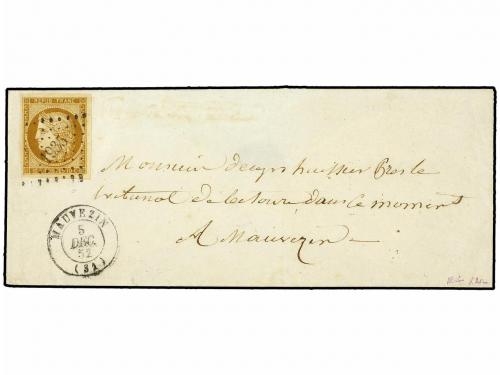 REPUB. FRANC.
Monsieur decys huissier Pres le
tribunal de lectoure dans ce moment
A Mauvezin
MAUVEZIN
5
DEC.
52
(31)